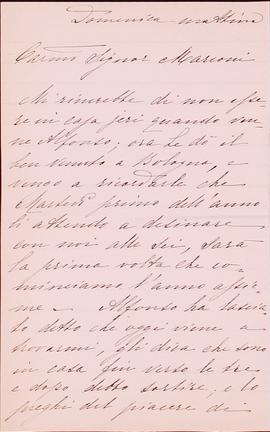 Domenica mattina
Carmo Signor Marconi
Mi rincrebbe di non esse
re in casa jeri quando ven
ne Alfonso; ora Le dò il
ben venuto a Bologna, e
vengo a ricordarle che
Martedì primo dell'anno
li attendo a desinare
con noi alle Sei, Sarà
la prima volta che co
minciamo l'anno assie
me — Alfonso ha lascia
to detto che oggi viene a
trovarmi, gli dica che sono
in casa fin verso le tre
e dopo debbo sortire, e lo
preghi del piacere di